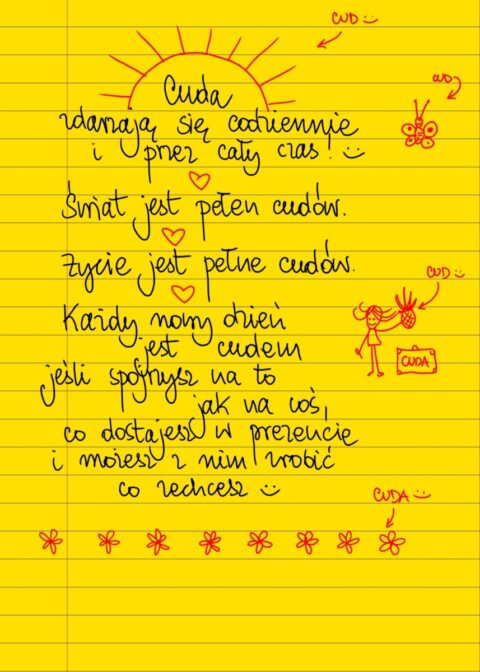 CUD :)
CUD
Cuda
zdarzają się codziennie
i przez cały czas! :)
Świat jest pełen cudów.
Życie jest pełne cudów.
CUD :)
Każdy nowy dzień
jest cudem
CUDA
jeśli spojrzysz na to
jak na coś,
co dostajesz w prezencie
i możesz z nim zrobić
co zechcesz :)
CUDA :)